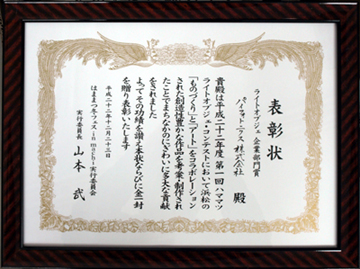 表彰状
ライトオブジェ企業部門賞
パイフォトニクス株式会社 殿
貴殿は平成二十二年度第一回ハママツ
ライトオブジェ・コンテストにおいて浜松の
「ものづくり」と「アート」をコラボレーション
された創造性豊かな作品を考案・制作され
たことでまちなかのにぎわいに多大な貢献
をされました
よってその功績を讃え本状ならびに金一封
を贈り表彰いたします
平成二十二年十二月二十三日
はままつ冬フェス in machi 実行委員会
実行委員長 山本 武